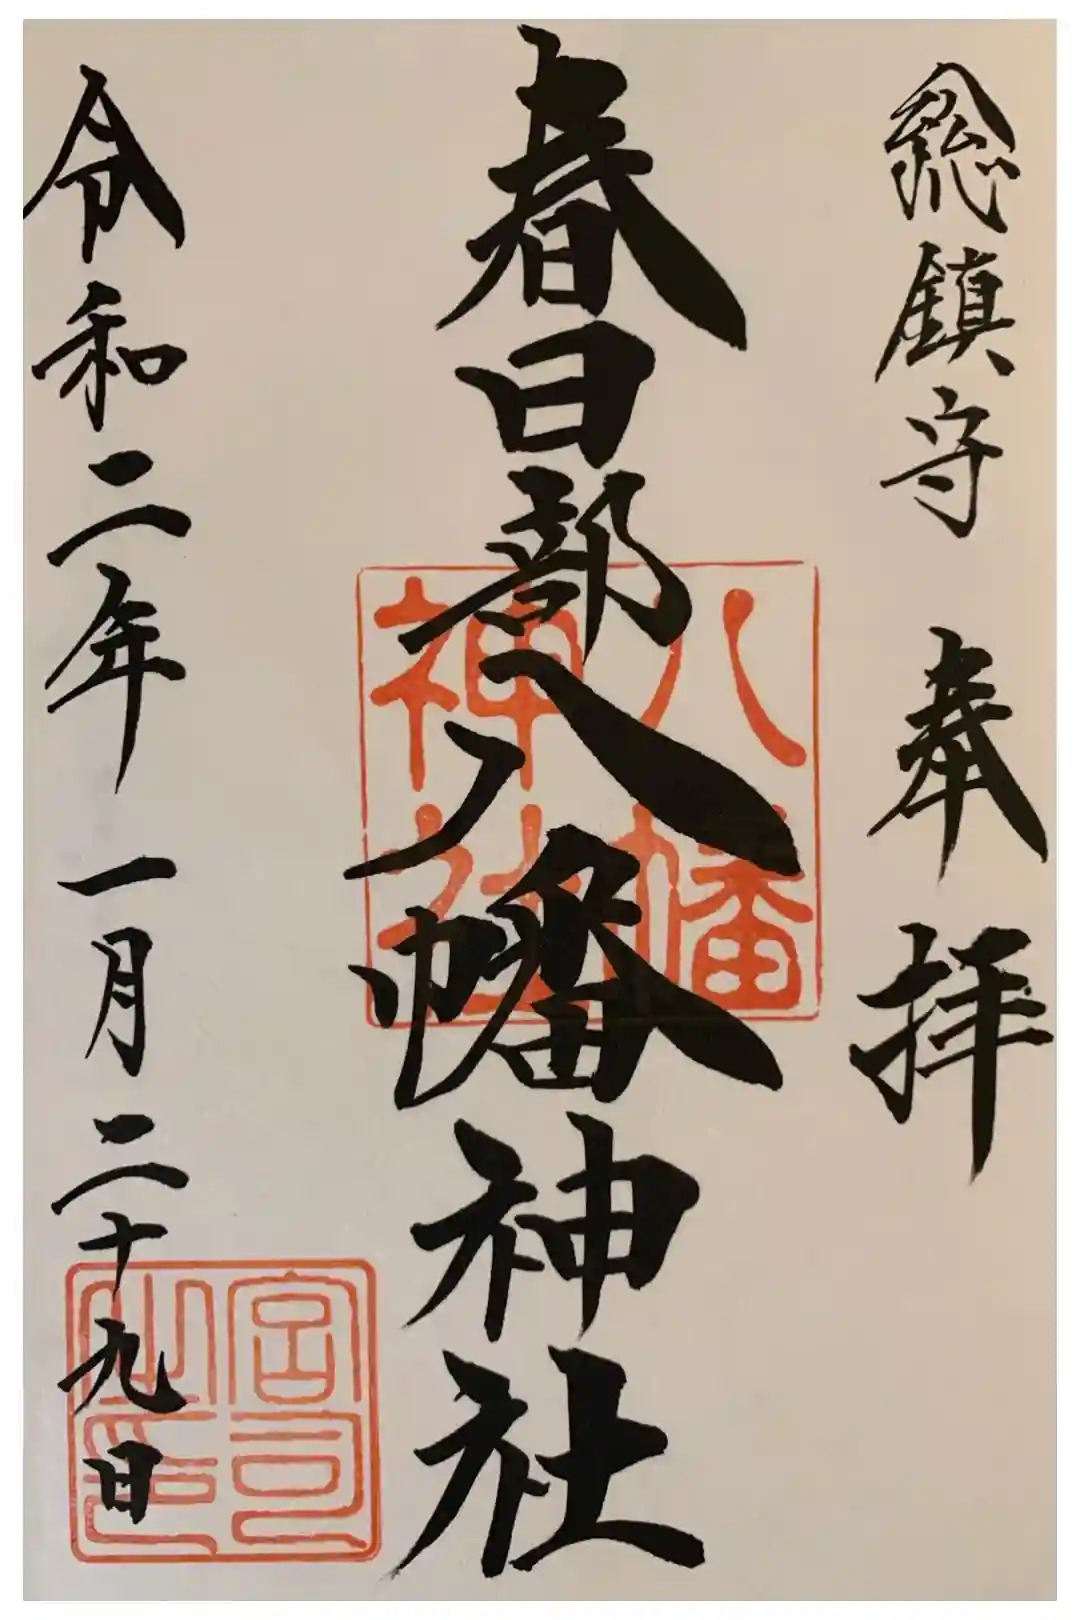 総鎮守　奉拝
春日部八幡神社
令和二年　一月二十九日
八幡神社
宮司之印